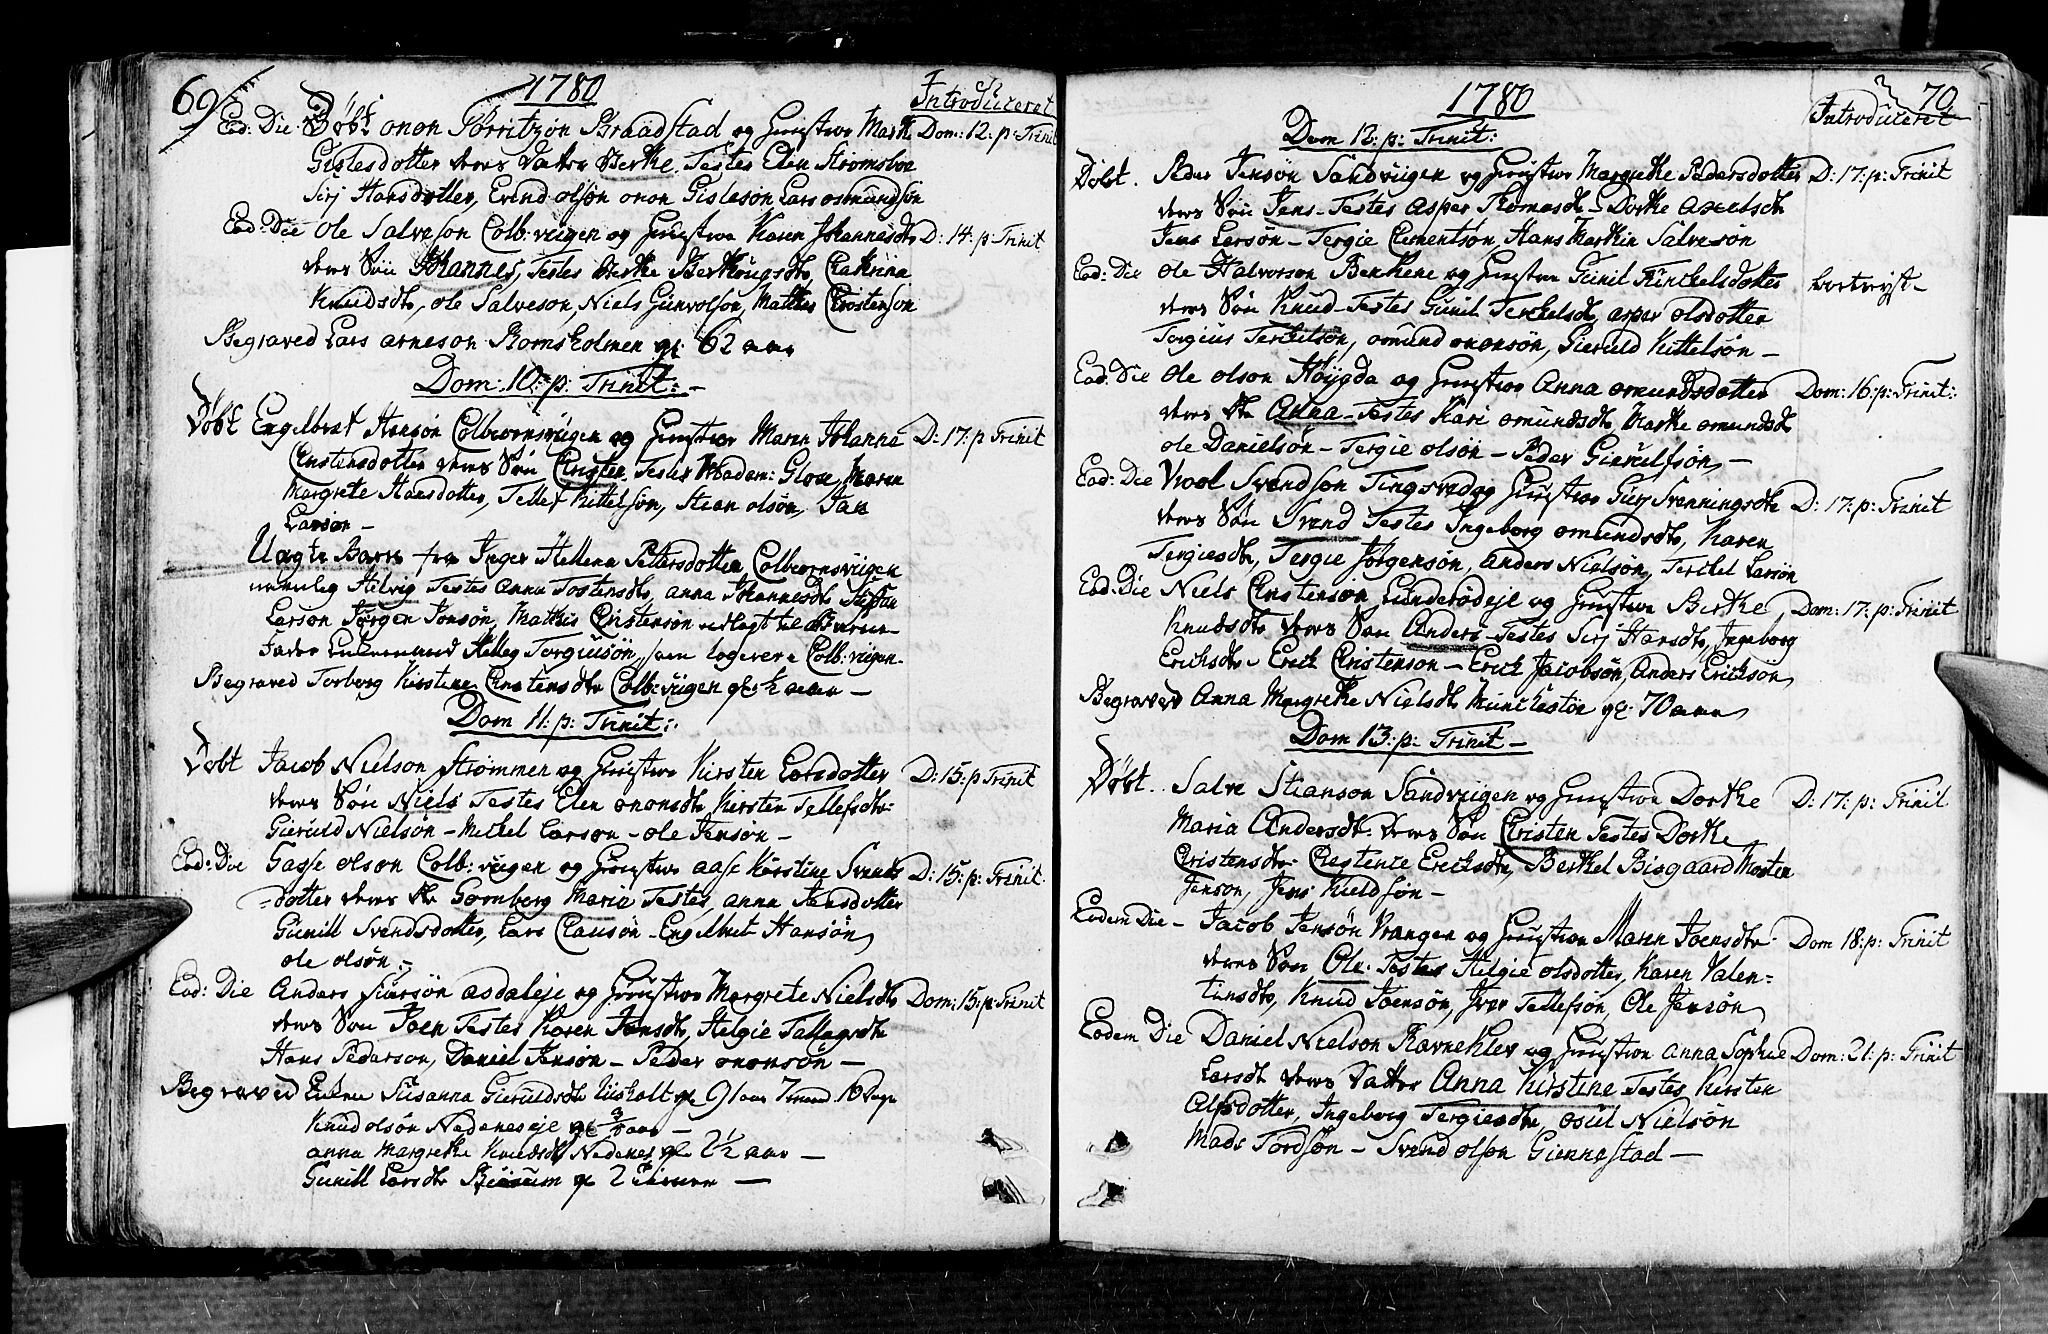 69
1780
Introduceret
Ead: Die Döbt onon Törritzön Braadstad og Hustroe Marte Dom: 12: p: Trinit
Gislesdotter deres Datter Berte. Testes Elen Strömsboe
Sirj Hansdotter, Evend olsön onon Gisleson Lars osmundsön
Ead: Die ole Salveson Colb:viigen og Hustroe Karen Johannesdtr D: 14: p: Trinit
deres Sön Johannes, Testes Berthe Chatrina
Knudsdtr, ole Salveson, Niels Gunvolsön, Mathis Christensön
Begraved Lars arneson Bornsholmen gl: 62 aar
Dom: 10: p: Trinit: -
Döbt Engelbret Hansön Colbiornsviigen og Hustroe Maren Johanna D: 17: p Trinit
Cristensdotter deres Sön Christen. Testes Madem: Glove, Maren
Margrete Hansdotter, Tellef Kittelsön, Stian olsön, Jan
Larsön -
Uægte Barn fra Inger Hellena Pettersdotter Colbiornsviigen
navnlig Helvig Testes Anna Tostensdtr, anna Johannesdtr Steffan
Larson Jörgen Jonsön, Mathis Cristensön udlagt til Barne-
fader Helleg Torgiusön, som logerer i Colb:viigen-
Begraved Torborg Kirstine Cristensdtr Colb:viigen gl: ½ aar -
Dom 11: p: Trinit:
Döbt Jacob Nielson Strömmen og Hustroe Kirsten Larsdotter D: 15: p Trinit
deres Sön Niels Testes Elen ononsdtr Kirsten Tellefsdtr:
Gieruld Nielsön - Mickel Larson - ole Jensön -
Ead: Die Tasse olson Colb: viigen og Hustroe aase Kirstine Svends D: 15: p: Trinit
=dotter deres Dtr Gornberg Maria Testes, anna Jensdotter
Giunill Svendsdotter, Lars Clausön - Engelbret Hansön
ole olsön -
Ead: Die Anders Siursön asdaleje og Hustroe Margrete Nielsdtr Dom: 15: p: Trinit
deres Sön Joen Testes Karen Jensdtr, Helgie Tallagsdtr
Hans Pederson, Daniel Jensön - Peder ononsön -
Begraved Enken Susanna Gieruldsdtr Liisholt gl 91 aar 7 maan: 16 dage
Knud olsön Nedenes eje gl ¾ aar -
anna Margrethe Knudsdtr Nedenes gl 2½ aar -
Gunill Larsdtr Biösum gl 2 -
1780
70
Introduceret
Dom 12: p: Trinit:
Döbt. Peder Jensön Sandviigen og Hustroe Margrethe Pedersdotter D: 17: p: Trinit
deres Sön Jens - Testes asper Thomasdt - Dorthe Axelsdt
Jens Larsön - Tergie Clementsön, Hans Martin Salvesön
Ead: Die ole Halvorson Benkene og Hustroe Gunil Terchelsdotter bortreyst -
deres Sön Knud - Testes Gunil Terkelsdt, asper olsdotter
Torgius Terkelsön, omund ononsön, Gieruld Kittelsön -
Ead: Die ole olson Höygda og Hustroe Anna omundsdotter Dom: 16: p: Trinit:
deres Dtr Anna - Testes Kari omundsdt, Marthe omundsdt
ole Danielsön - Tergie olsön - Peder Gierulfsön, -
Ead: Die Vrool Svendsön Tingsved og Hustroe Guri Svenningsdtr D: 17: p: Trinit
deres Sön Svend Testes Ingeborg omundsdt, Karen
Tergiesdt, Tergie Jörgensön, Anders Nielsön, Terckel Larsön
Ead: Die Niels Cristenson Lunderödeje og Hustroe Berthe Dom: 17: p: Trinit
Knudsdt deres Sön Anders - Testes Sirj Hansdt, Ingeborg
Ericksdt - Erick Christenson - Erick Jacobsön, Anders Erickson
Begraved Anna Margrethe Nielsdt Munchestöe gl: 70 aar
Dom 13: p: Trinit -
Döbt. Salve Stianson Sandviigen og Hustroe Dorthe D: 17: p: Trinit
Maria Andersdt. deres Sön Christen Testes Dorthe
Cristensdtr - Chestence Ericksdtr, Berthel Bisgaard Morten
Jenson, Jens Kield sön -
Eodem Die - Jacob Jensön Vrangen og Hustroe Maren Joensdtr Dom 18: p: Trinit
deres Sön Ole. Testes Helgie olsdotter, Karen Valen=
tinsdtr, Knud Joensön, Iver Tellefsön, Ole Jensön
Eodem Die Daniel Nielson Ravneklev og Hustroe anna Sophie Dom: 21: p: Trinit
Larsdt deres Datter Anna Kirstine Testes Kirsten
Alfsdotter, Ingeborg Tergiesdtr, osul Nielsön
Mads Tordsön - Svend olsön Giennestad -